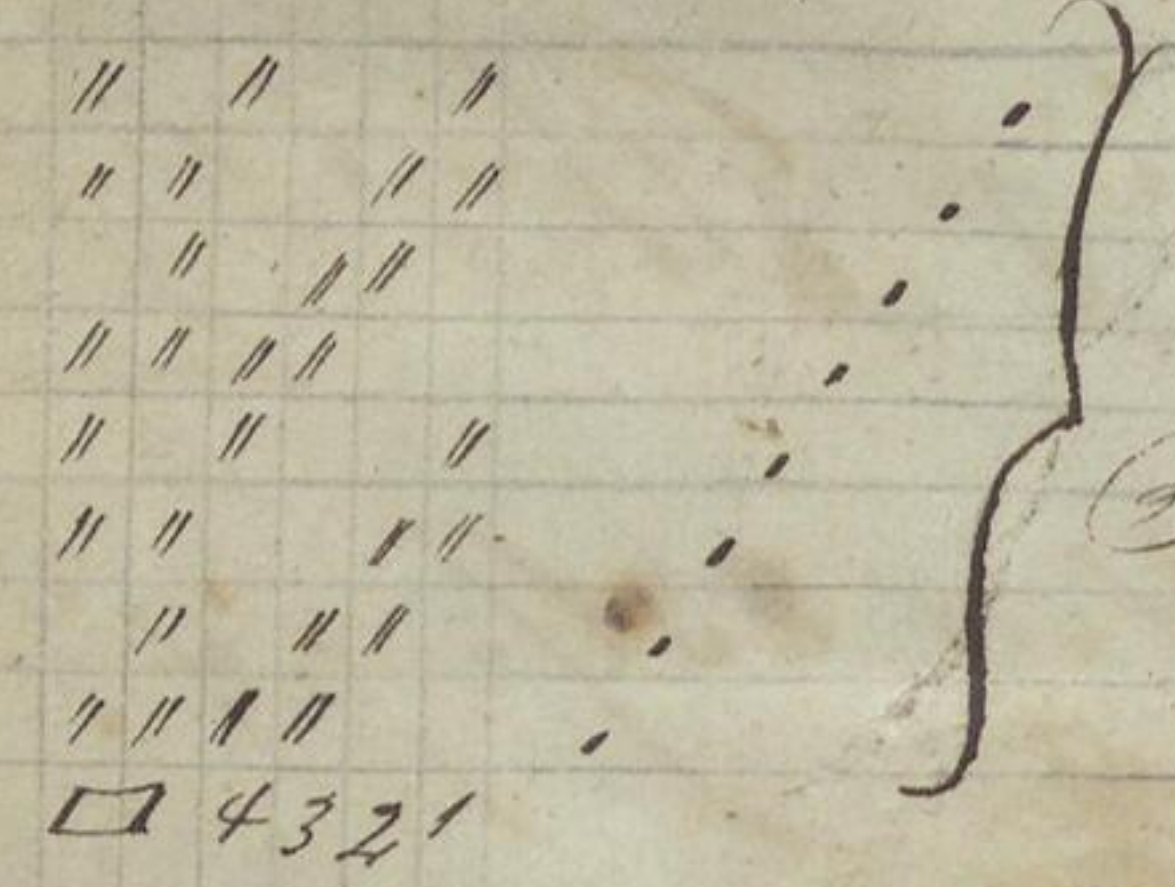 〃 〃 〃
〃 〃 〃 〃
〃 〃 〃
〃 〃 〃 〃
〃 〃 〃
〃 〃 〃 〃
〃 〃 〃
〃 〃 〃 〃
▭ 4 3 2 1